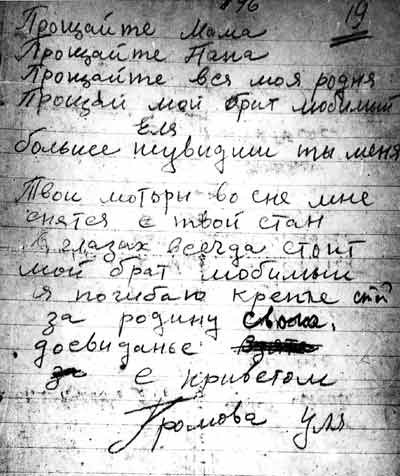 196 19
Прощайте Мама
Прощайте Папа
Прощайте вся моя родня
Прощай мой брат любимый
Еля
больше неувидиш ты меня
Твои моторы во сне мне
снятся е твой стан
В глазах всегда стоит
мой брат любимый
я погибаю крепче стой
за родину свою.
досвиданье
С приветом
Громова Уля